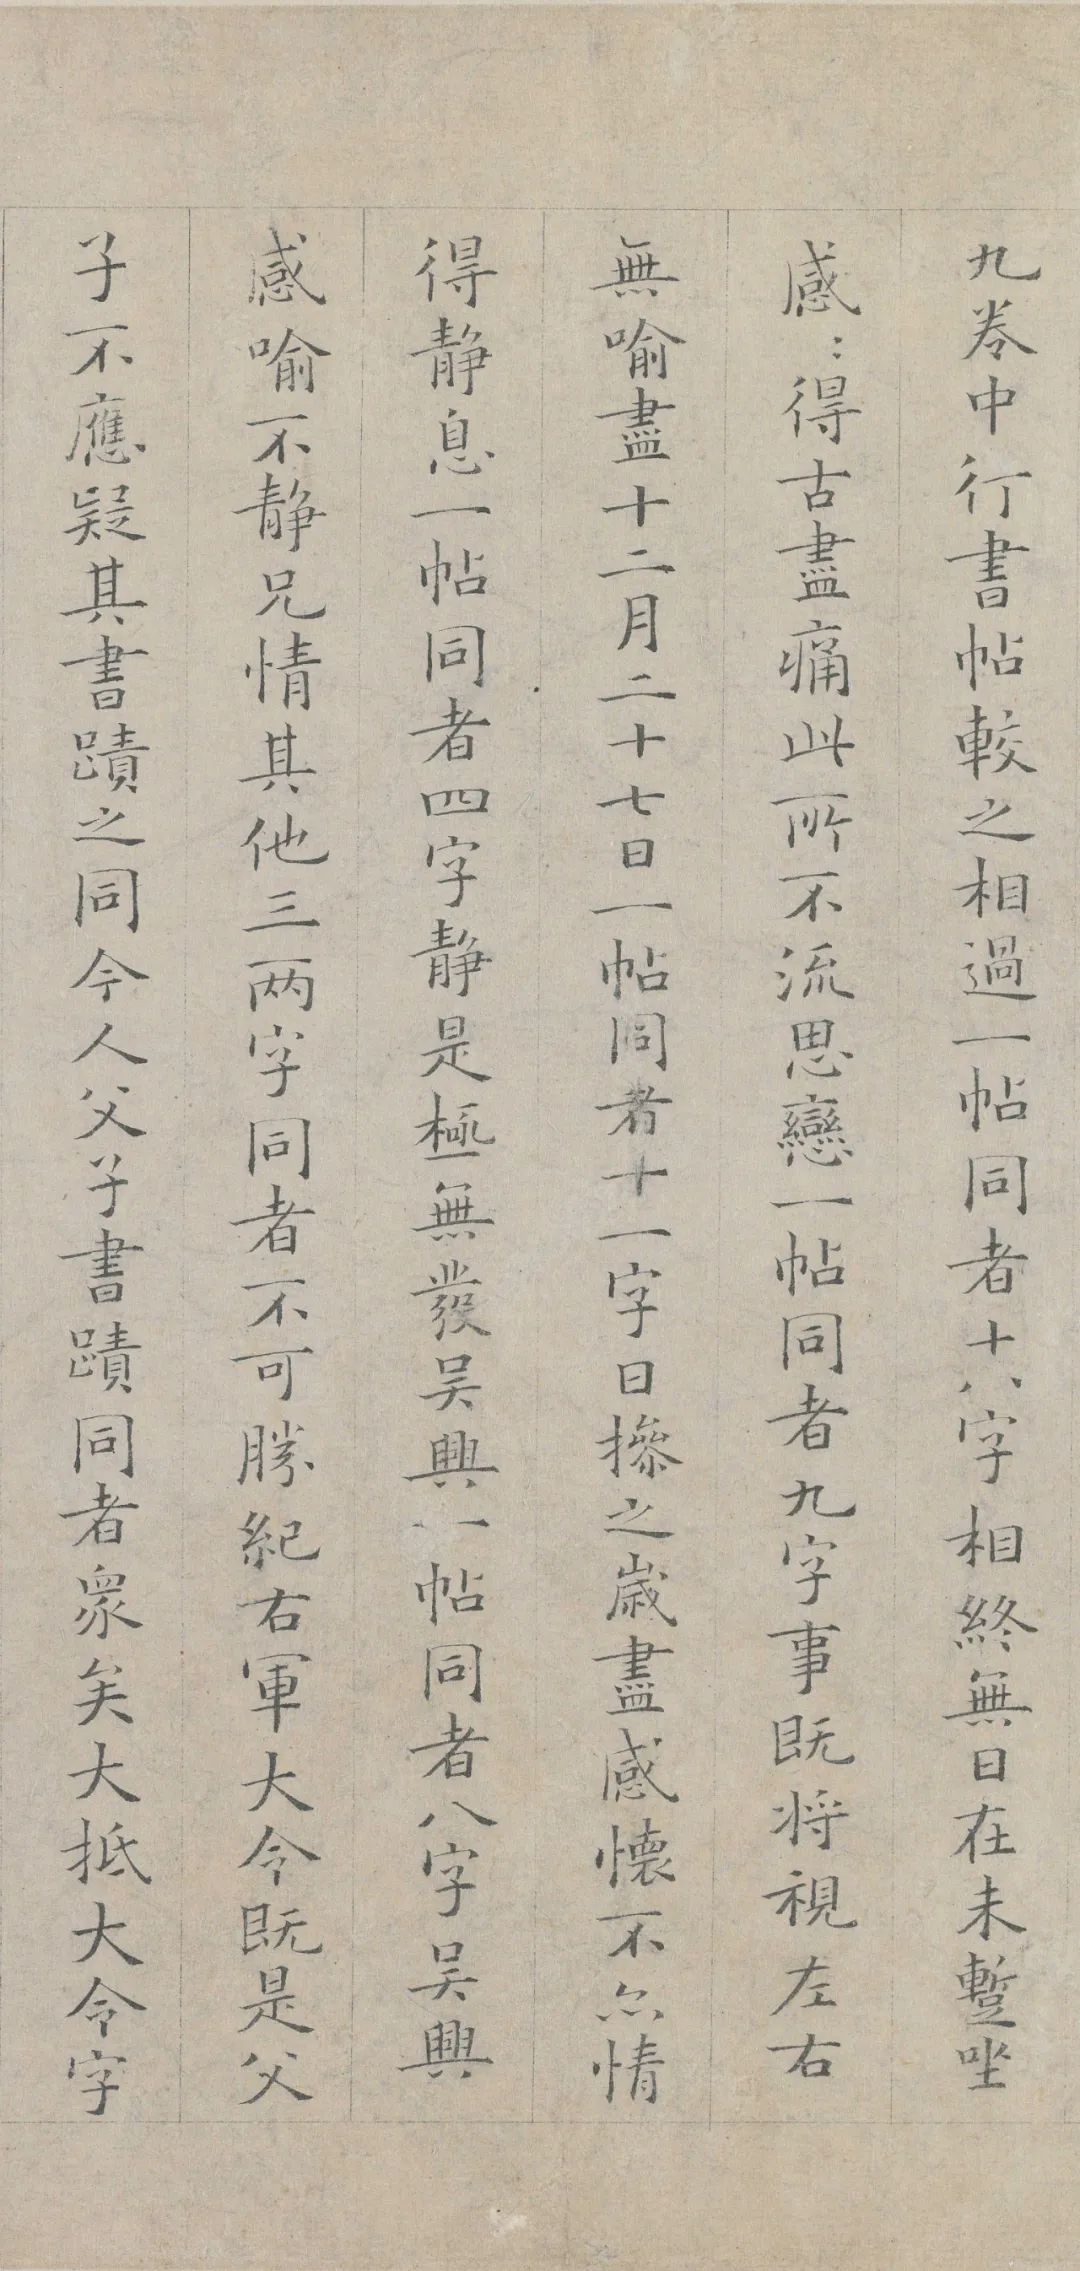 九卷中行書帖較之相過一帖同者十八字相終無日在未蹔唑
感〻得古盡痛此所不流思戀一帖同者九字事既将視左右
無喻盡十二月二十七日一帖同者十一字日摻之歳盡感懐不忘情
得静息一帖同者四字静是極無發吴興一帖同者八字吴興
感喻不静兄情其他三两字同者不可勝紀右軍大令既是父
子不應疑其書蹟之同今人父子書蹟同者衆矣大抵大令字